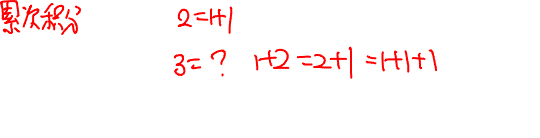 累次积分 2=1+1
3=? 1+2=2+1=1+1+1